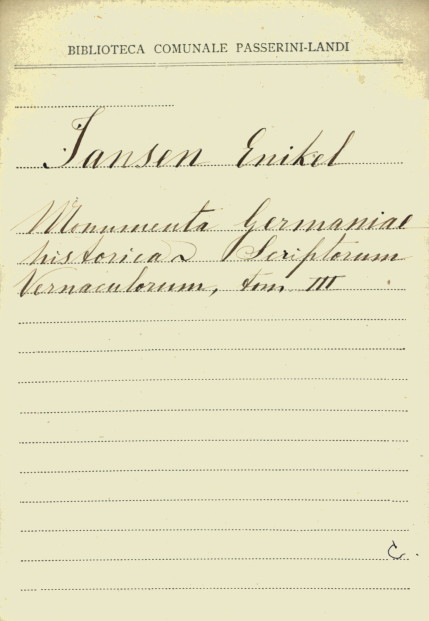 BIBLIOTECA COMUNALE PASSERINI-LANDI
Jansen Enikel
Monumenta Germaniae
historica Scriptorum
Vernaculorum, tom. III
C.